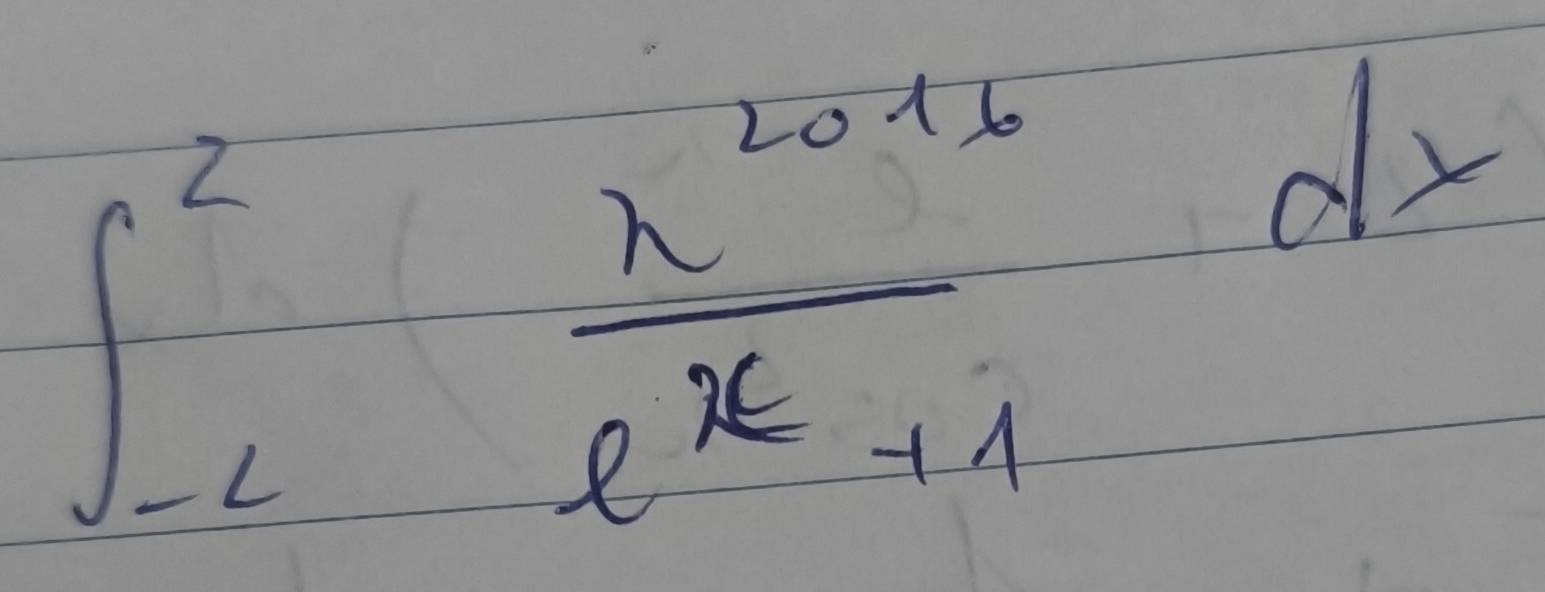 ∫_{-2}^{2} \frac{x^{2016}}{e^{x}+1} dx